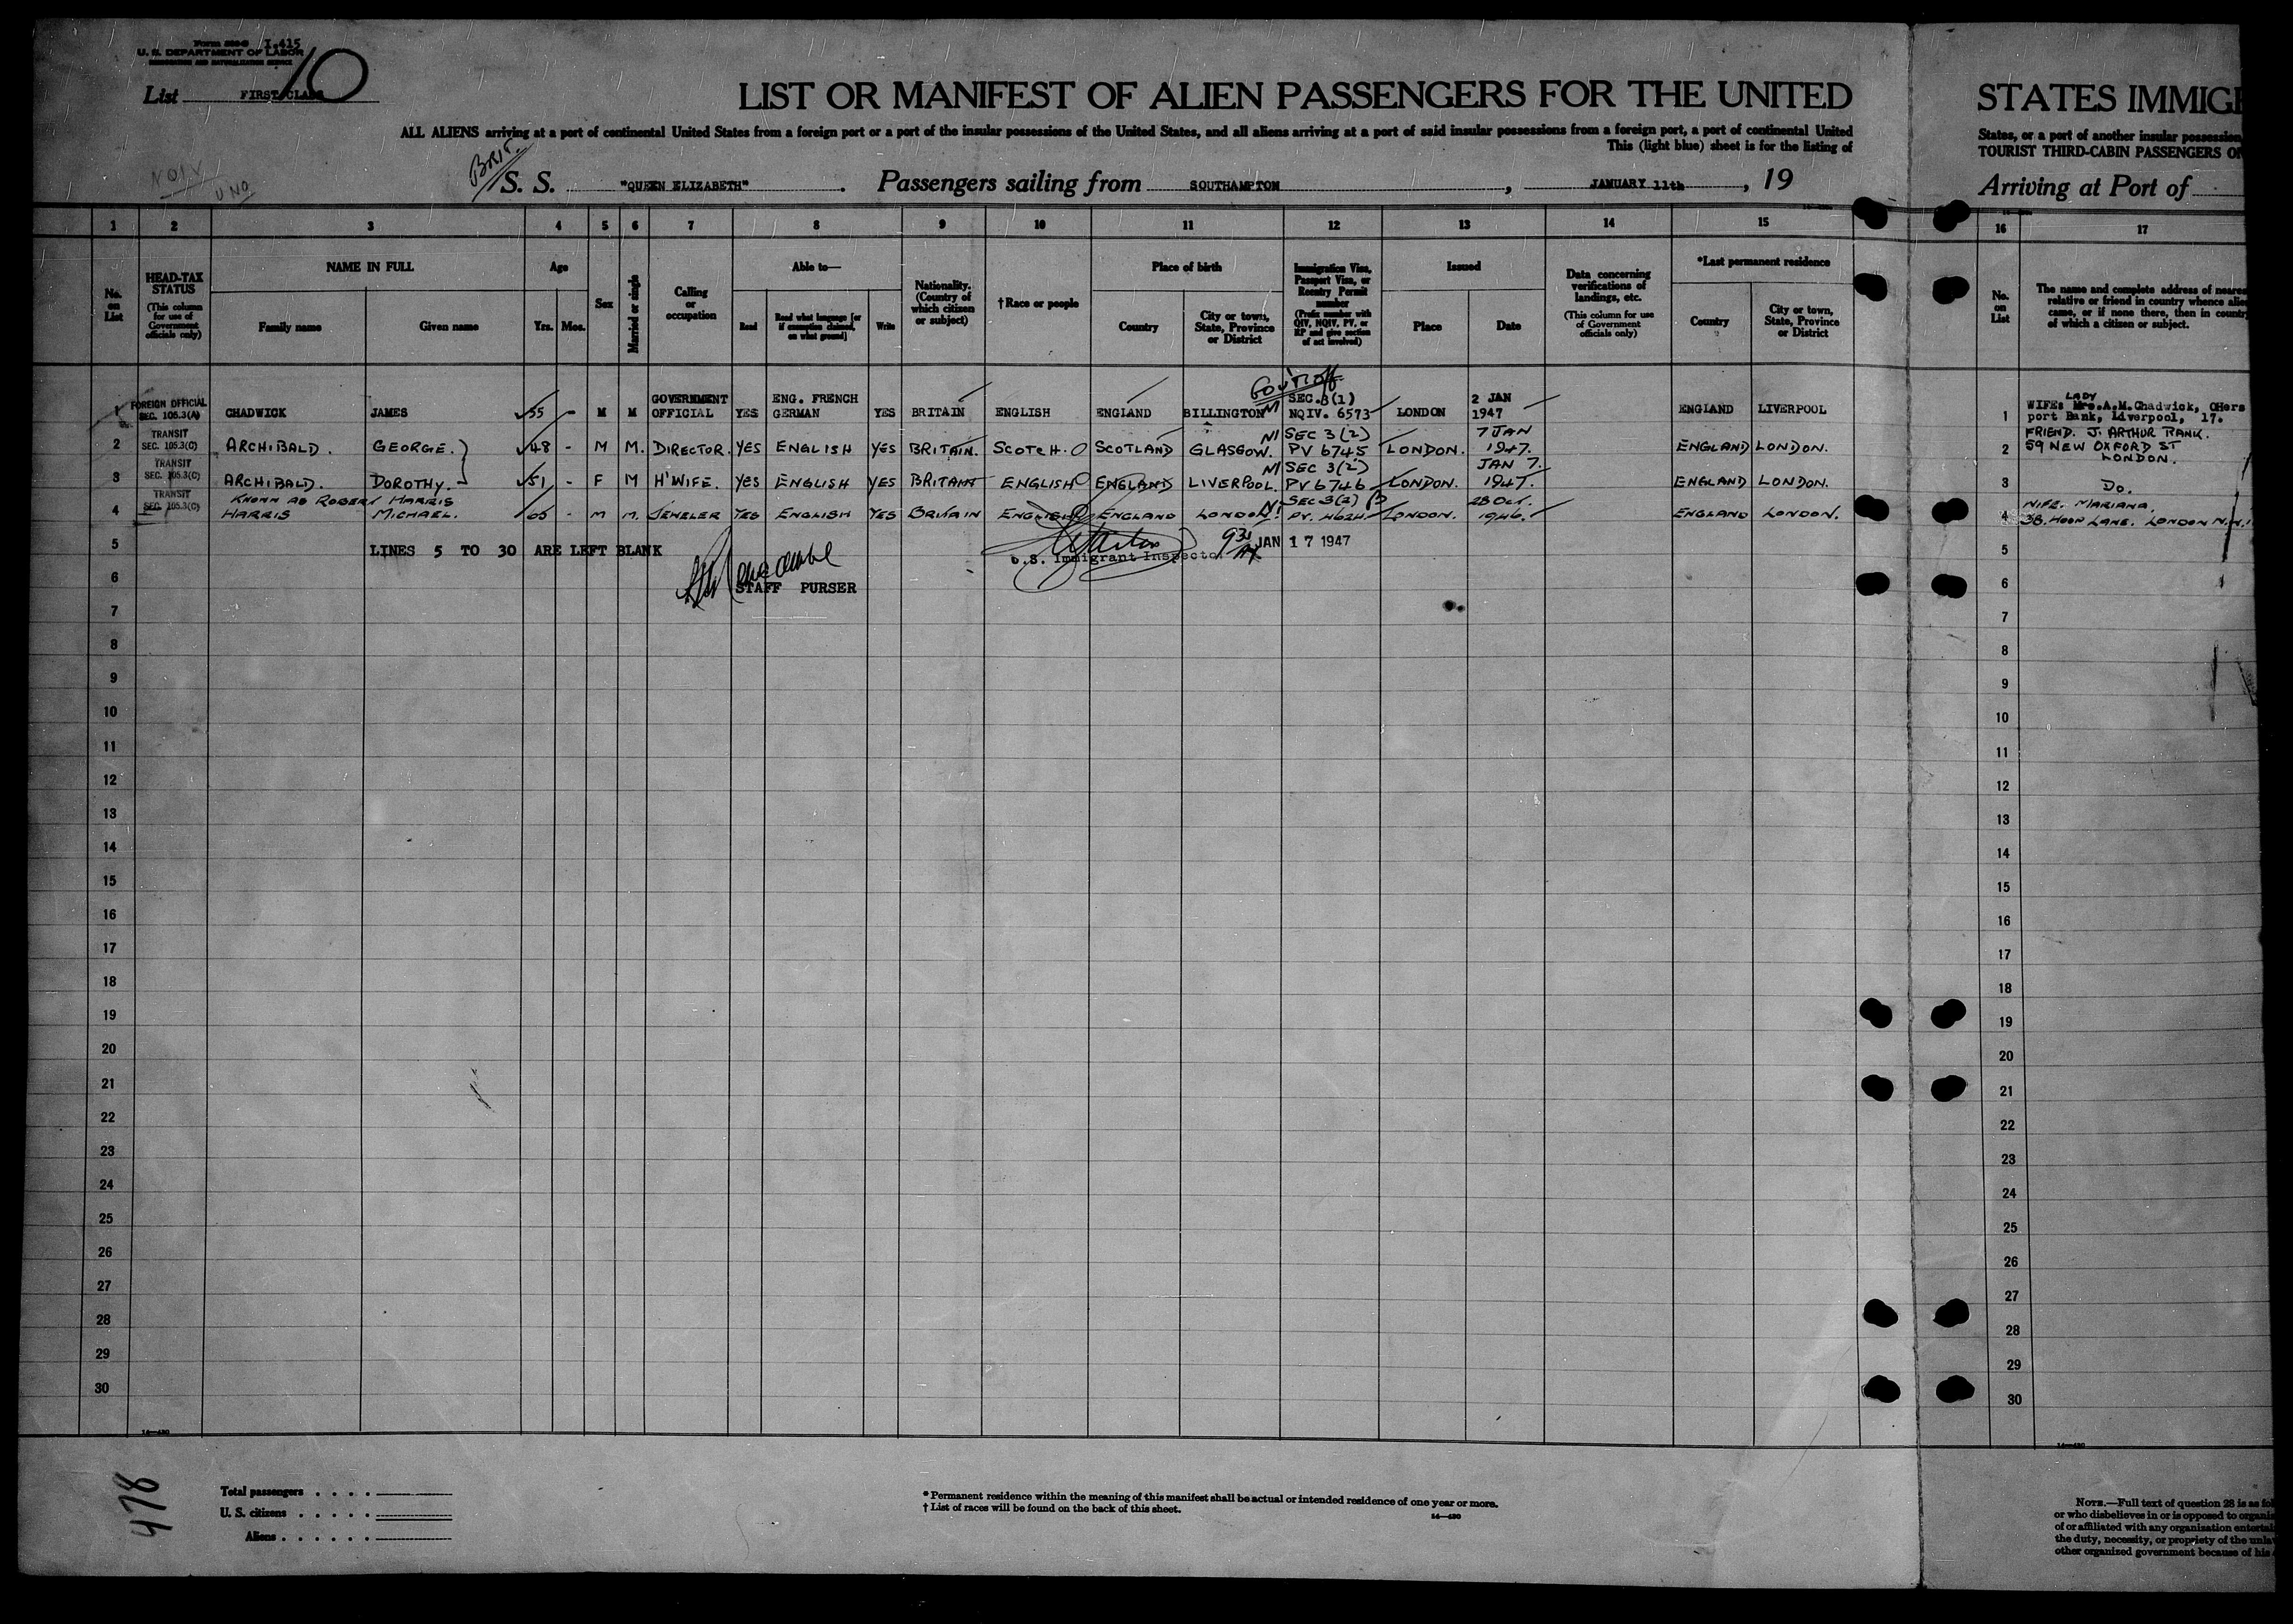 Form 500-B I-415
U. S. DEPARTMENT OF LABOR
IMMIGRATION AND NATURALIZATION SERVICE
List FIRST CLASS 10
LIST OR MANIFEST OF ALIEN PASSENGERS FOR THE UNITED
STATES IMMIG
ALL ALIENS arriving at a port of continental United States from a foreign port or a port of the insular possessions of the United States, and all aliens arriving at a port of said insular possessions from a foreign port, a port of continental United
States, or a port of another insular possession
This (light blue) sheet is for the listing of
TOURIST THIRD-CABIN PASSENGERS ON
BRIT.
UNO
S. S. "QUEEN ELIZABETH" . Passengers sailing from SOUTHAMPTON , JANUARY 11th , 19
Arriving at Port of
1 2 3 4 5 6 7 8 9 10 11 12 13 14 15 16 17
No. on List
HEAD-TAX STATUS
(This column for use of Government officials only)
NAME IN FULL
Family name
Given name
Age
Yrs.
Mos.
Sex
Married or single
Calling or occupation
Able to—
Read
Read what language [or if exemption claimed, on what ground]
Write
Nationality. (Country of which citizen or subject)
† Race or people
Place of birth
Country
City or town, State, Province or District
Immigration Visa, Passport Visa, or Reentry Permit number
(Prefix number with QIV, NQIV, PV, or RP and give section of act involved)
Issued
Place
Date
Data concerning verifications of landings, etc.
(This column for use of Government officials only)
*Last permanent residence
Country
City or town, State, Province or District
No. on List
The name and complete address of neares
relative or friend in country whence alie
came, or if none there, then in countr
of which a citizen or subject.
Gov't off
1 FOREIGN OFFICIAL SEC. 105.3(A) CHADWICK JAMES 55 - M M GOVERNMENT OFFICIAL YES ENG. FRENCH GERMAN YES BRITAIN ENGLISH ENGLAND BILLINGTON SEC.3(1) NQIV. 6573 LONDON 2 JAN 1947 ENGLAND LIVERPOOL 1 WIFE: LADY Mrs.A.M.Chadwick, OHers port Bank, Liverpool, 17.
2 TRANSIT SEC. 105.3(C) ARCHIBALD. GEORGE. 48 - M M. DIRECTOR. YES ENGLISH YES BRITAIN. SCOTCH. SCOTLAND GLASGOW. SEC 3(2) PV 6745 LONDON. 7 JAN 1947. ENGLAND LONDON. 2 FRIEND. J. ARTHUR RANK. 59 NEW OXFORD ST LONDON.
3 TRANSIT SEC. 105.3(C) ARCHIBALD. DOROTHY. 51 - F M H'WIFE. YES ENGLISH YES BRITAIN ENGLISH ENGLAND LIVERPOOL. SEC 3(2) PV 6746 LONDON. JAN 7. 1947. ENGLAND LONDON. 3 Do.
4 TRANSIT SEC. 105.3(C) KNOWN AS ROBERT HARRIS
HARRIS MICHAEL. 65 - M M. JEWELER YES ENGLISH YES BRITAIN ENGLISH ENGLAND LONDON. SEC 3(2) PV. 4624 LONDON. 28 OCT. 1946. ENGLAND LONDON. 4 WIFE. MARIANA. 38. HOOP LANE. LONDON N.W.
5 LINES 5 TO 30 ARE LEFT BLANK U.S. Immigrant Inspector 9 30 AM JAN 17 1947 5
6 STAFF PURSER 6
7 7
8 8
9 9
10 10
11 11
12 12
13 13
14 14
15 15
16 16
17 17
18 18
19 19
20 20
21 21
22 22
23 23
24 24
25 25
26 26
27 27
28 28
29 29
30 30
478
Total passengers . . . .
U. S. citizens . . . . .
Aliens . . . . . .
* Permanent residence within the meaning of this manifest shall be actual or intended residence of one year or more.
† List of races will be found on the back of this sheet.
14—430
NOTE.—Full text of question 28 is as fol
or who disbelieves in or is opposed to organiz
of or affiliated with any organization entertai
the duty, necessity, or propriety of the unla
other organized government because of his